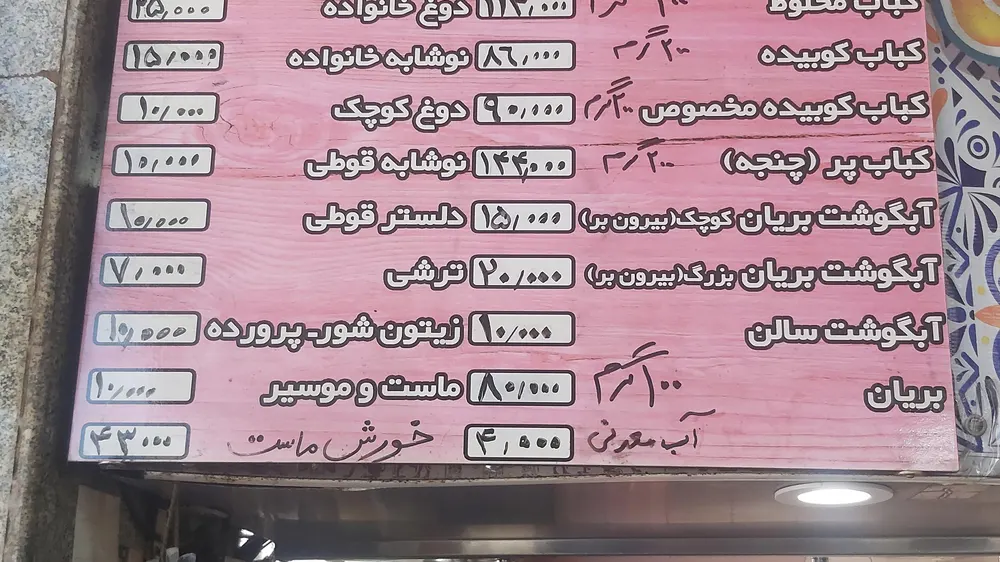 کباب مخلوط ۱۱۲٫۰۰۰ دوغ خانواده ۲۵٫۰۰۰
کباب کوبیده ۲۰۰ گرم ۸۶٫۰۰۰ نوشابه خانواده ۱۵٫۰۰۰
کباب کوبیده مخصوص ۲۰۰ گرم ۹۰٫۰۰۰ دوغ کوچک ۱۰٫۰۰۰
کباب پر (چنجه) ۲۰۰ گرم ۱۴۴٫۰۰۰ نوشابه قوطی ۱۰٫۰۰۰
آبگوشت بریان کوچک(بیرون بر) ۱۵٫۰۰۰ دلستر قوطی ۱۰٫۰۰۰
آبگوشت بریان بزرگ(بیرون بر) ۲۰٫۰۰۰ ترشی ۷٫۰۰۰
آبگوشت سالن ۱۰٫۰۰۰ زیتون شور-پرورده ۱۰٫۰۰۰
بریان ۱۰۰ گرم ۸۰٫۰۰۰ ماست و موسیر ۱۰٫۰۰۰
آب معدنی ۴٫۰۰۰ خورش ماست ۴۳٫۰۰۰